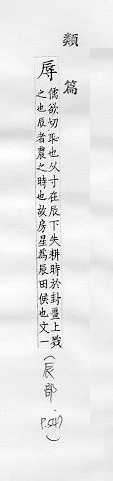 類篇
辱
儒欲切恥也从寸在辰下失耕時於封畺上戮
之也辰者農之時也故房星爲辰田候也文一
(辰部 P.547)